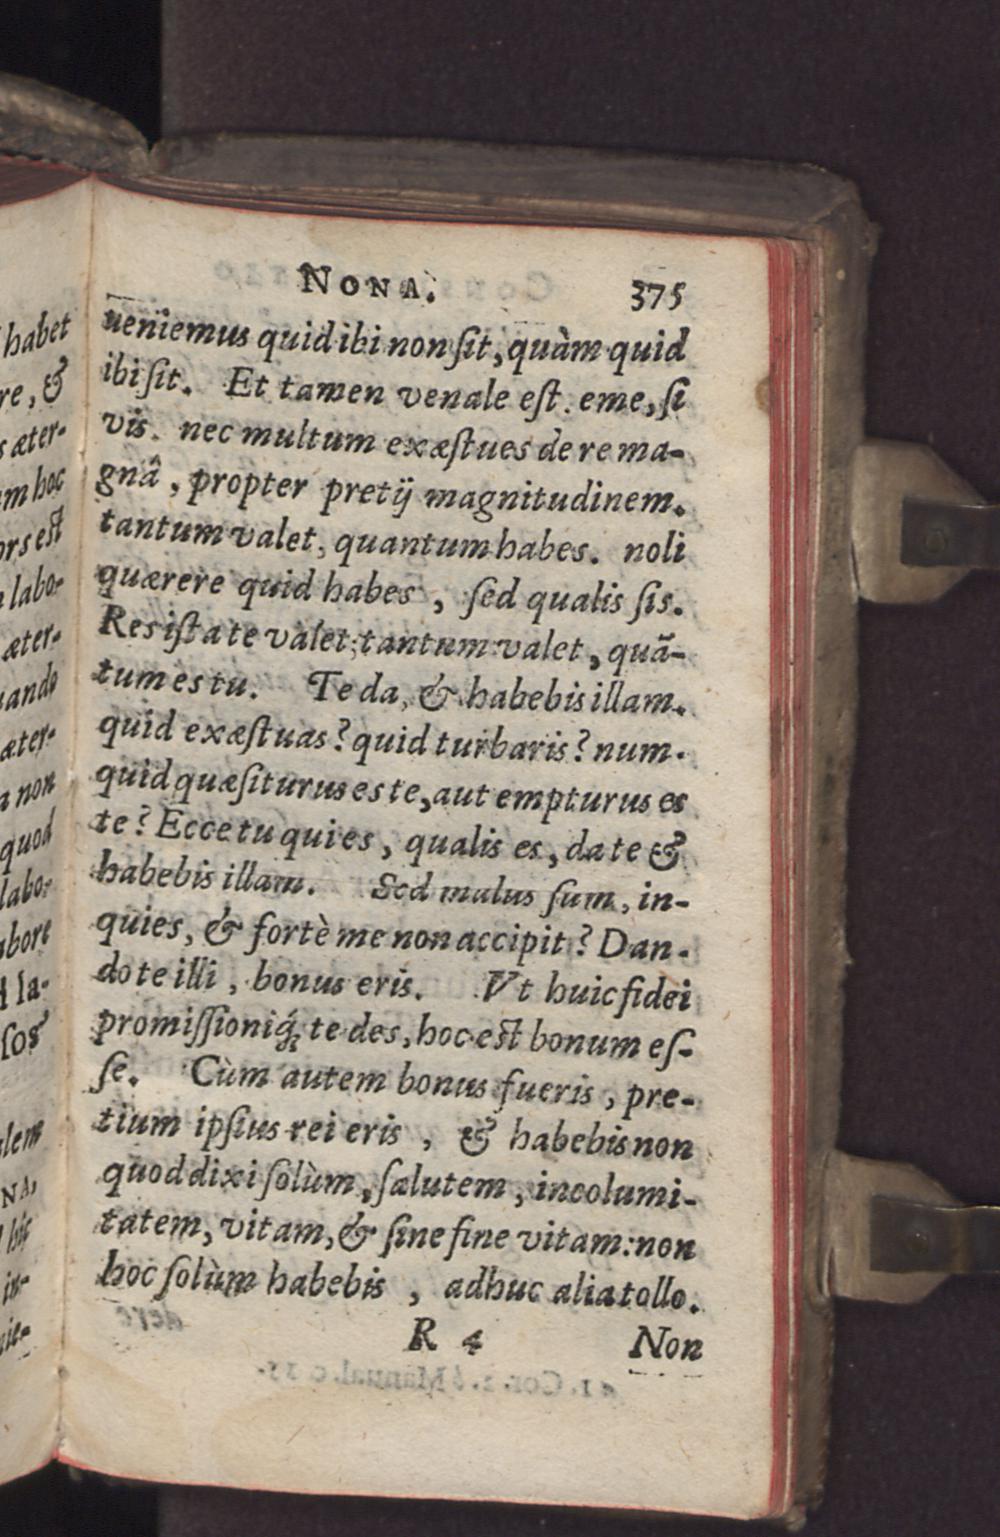 NONA. 375
ueniemus quid ibi non ſit, quàm quid
ibi ſit. Et tamen venale eſt. eme, ſi
vis. nec multum exæſtues de re ma-
gnâ, propter pretij magnitudinem.
tantum valet, quantum habes. noli
quærere quid habes, ſed qualis ſis.
Res iſta te valet; tantum valet, quã-
tum es tu. Te da, & habebis illam.
quid exæſtuas? quid turbaris? num-
quid quæſiturus es te, aut empturus es
te? Ecce tu qui es, qualis es, da te &
habebis illam. Sed malus ſum, in-
quies, & fortè me non accipit? Dan-
do te illi, bonus eris. Vt huic fidei
promiſſioniq́; te des, hoc eſt bonum eſ-
ſe. Cùm autem bonus fueris, pre-
tium ipſius rei eris, & habebis non
quod dixi ſolùm, ſalutem, incolumi-
tatem, vitam, & ſine fine vitam: non
hoc ſolùm habebis, adhuc alia tollo.
R 4 Non
habet
re, &
æter-
hoc
eſt
labo-
æter-
æter-
non
quod
labo-
la-
NA,
in-